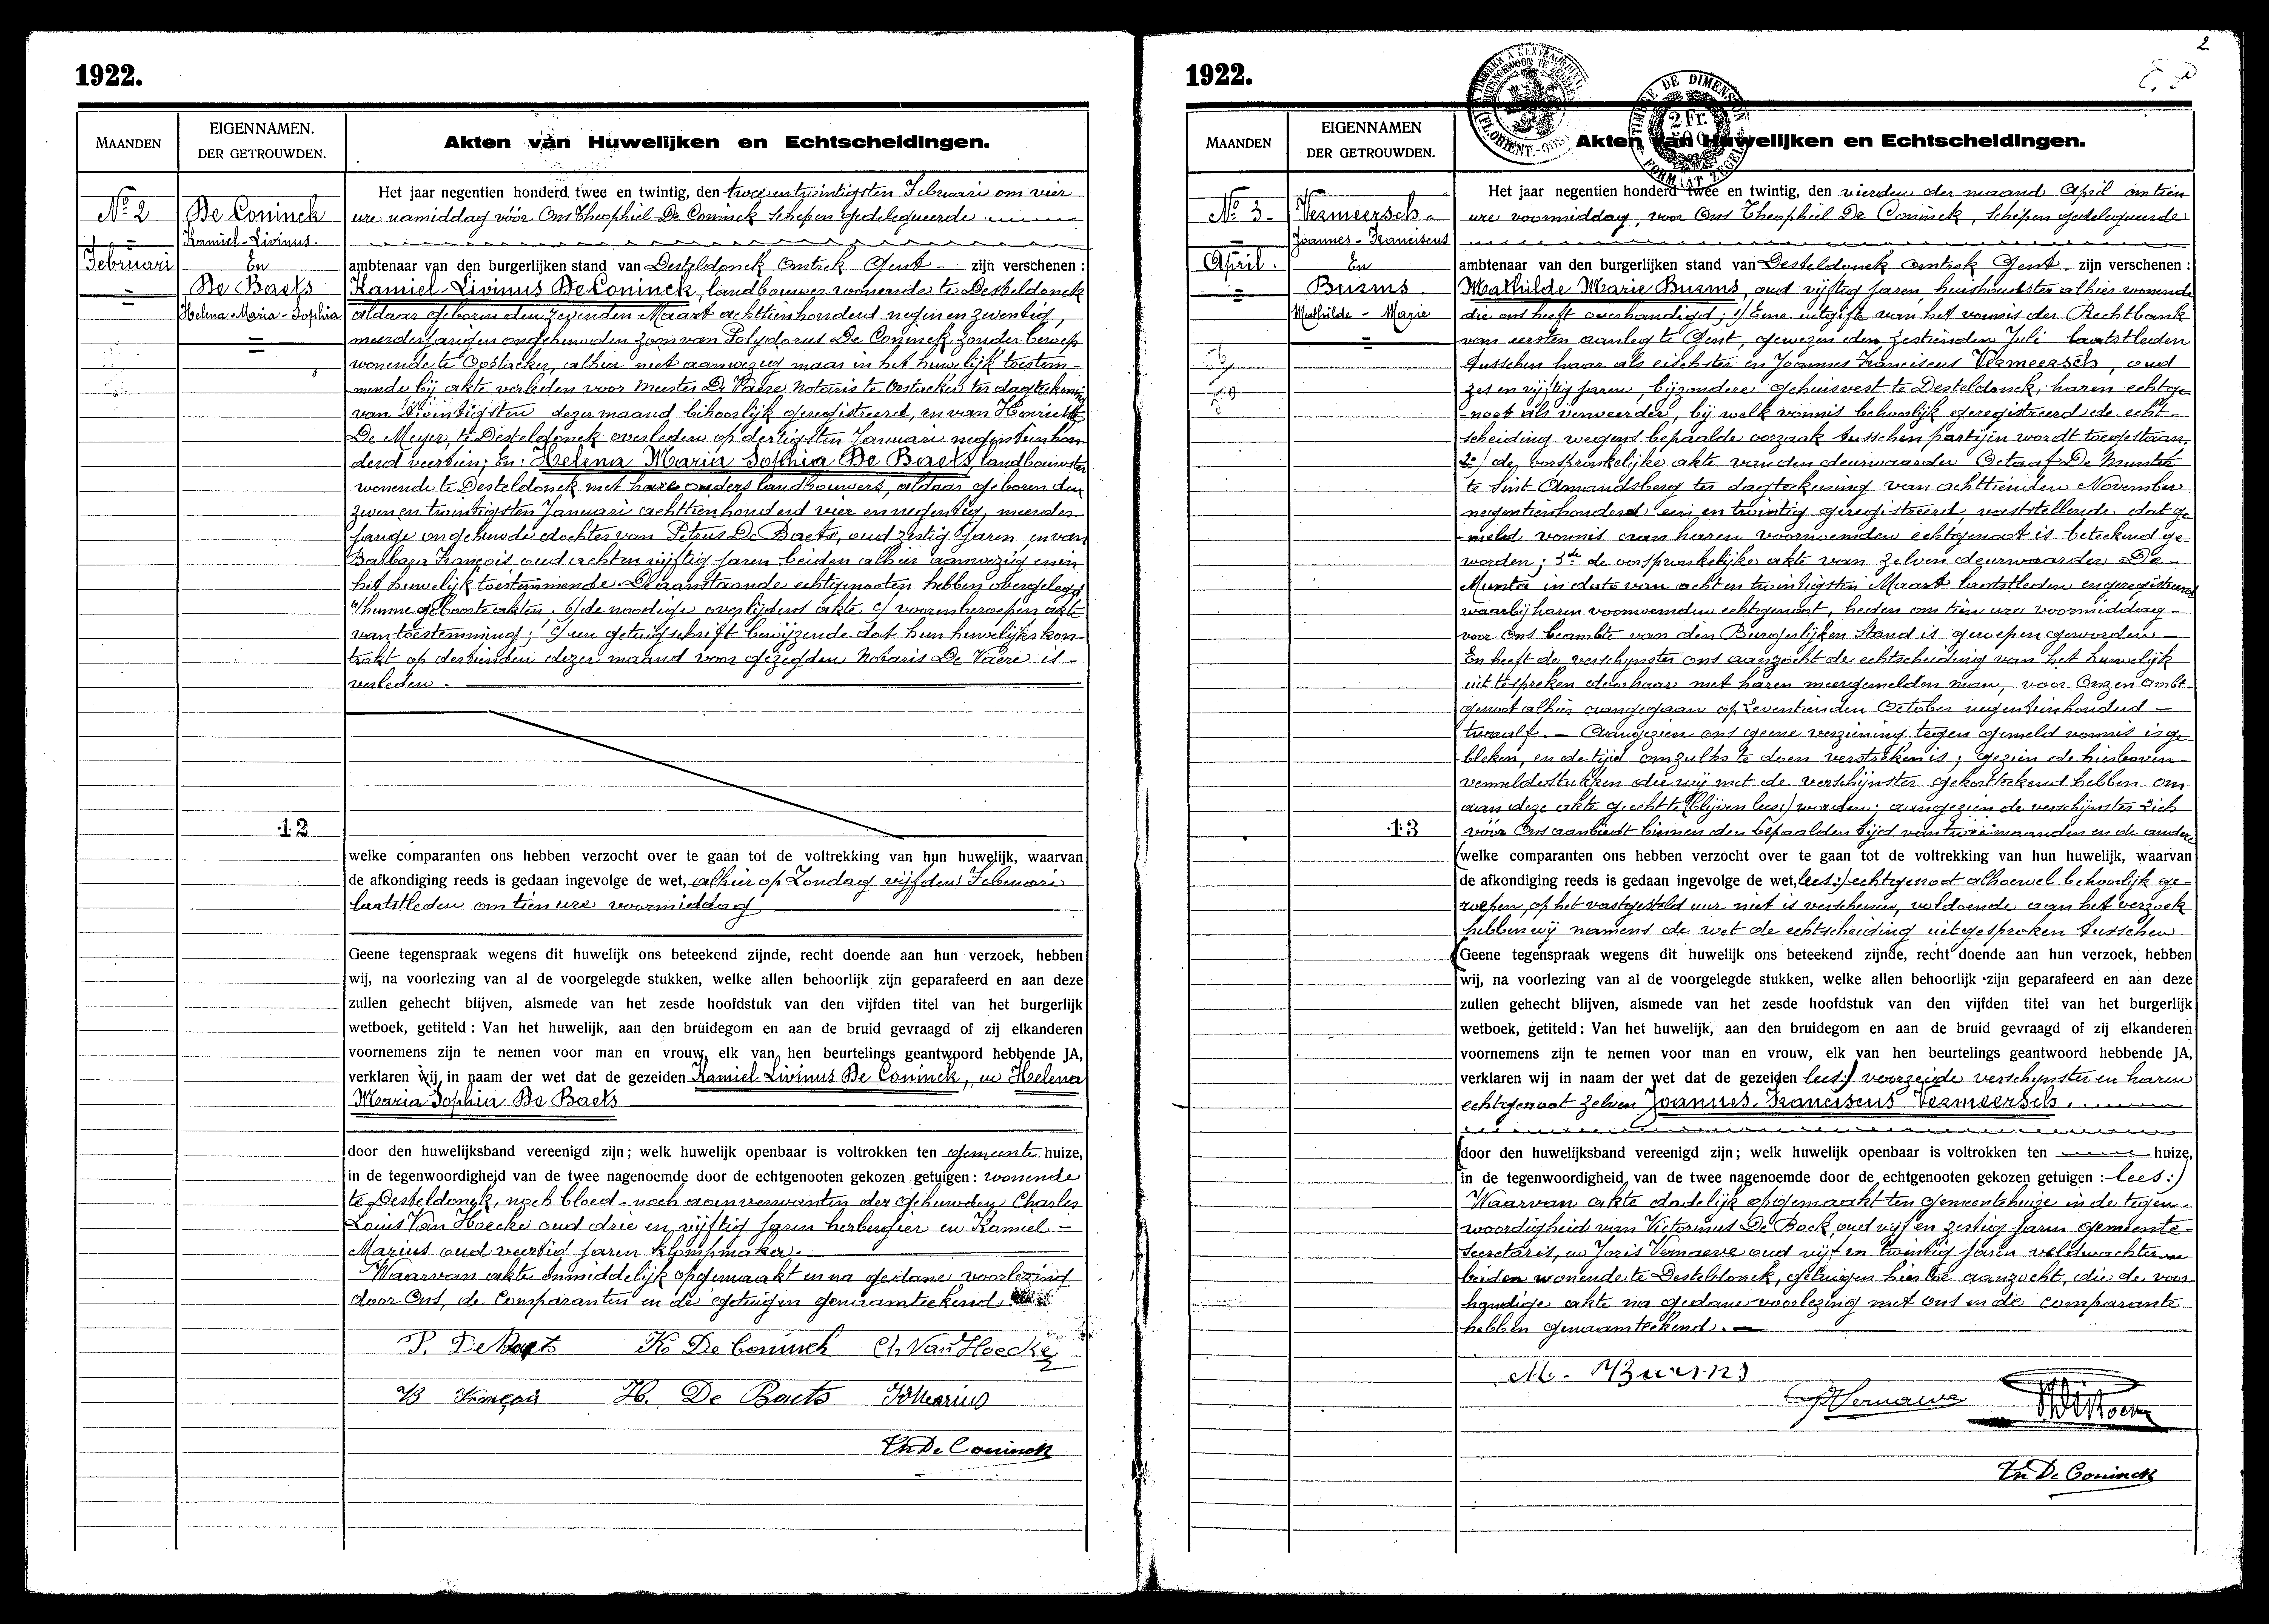 1922.
MAANDEN
EIGENNAMEN.
DER GETROUWDEN.
Akten van Huwelijken en Echtscheidingen.
Nº 2
Februari
De Coninck
Kamiel-Livinus.
En
De Baets
Helena-Maria-Sophia
12
Het jaar negentien honderd twee en twintig, den twee en twintigsten Februari om vier
ure namiddag vóór Ons Theophiel De Coninck Schepen gedelegueerde
ambtenaar van den burgerlijken stand van Desteldonck omtrek Gent - zijn verschenen :
Kamiel-Livinus De Coninck, landbouwer wonende te Desteldonck
aldaar geboren den zevenden Maart achttienhonderd negen en zeventig,
meerderjarigen ongehuwden zoon van Polydorus De Coninck zonder beroep
wonende te Oostacker, alhier niet aanwezig maar in het huwelijk toestem-
mende bij akte verleden voor Meester De Vaere Notaris te Oostacker ter dagteekening
van twintigsten dezer maand behoorlijk geregistreerd, en van Henriette
De Meyer, te Desteldonck overleden op dertigsten Januari negentienhon-
derd veertien; En: Helena Maria Sophia De Baets, landbouwster
wonende te Desteldonck met hare ouders landbouwers, aldaar geboren den
zeven en twintigsten Januari achttienhonderd vier en negentig, meerder-
jarige ongehuwde dochter van Petrus De Baets, oud zestig jaren en van
Barbara François oud acht en vijftig jaren beiden alhier aanwezig en in
het huwelijk toestemmende. De aanstaande echtgenooten hebben overgelegd
a/ hunne geboorteakten. b/ de noodige overlijdens akte c/ voorenberoepen akte
van toestemming; c/ een getuigschrift bewijzende dat hun huwelijkskon
trakt op dertienden dezer maand voor gezegden Notaris De Vaere is -
verleden.
welke comparanten ons hebben verzocht over te gaan tot de voltrekking van hun huwelijk, waarvan
de afkondiging reeds is gedaan ingevolge de wet, alhier op Zondag vijfden Februari
laatstleden om tien ure voormiddag
Geene tegenspraak wegens dit huwelijk ons beteekend zijnde, recht doende aan hun verzoek, hebben
wij, na voorlezing van al de voorgelegde stukken, welke allen behoorlijk zijn geparafeerd en aan deze
zullen gehecht blijven, alsmede van het zesde hoofdstuk van den vijfden titel van het burgerlijk
wetboek, getiteld : Van het huwelijk, aan den bruidegom en aan de bruid gevraagd of zij elkanderen
voornemens zijn te nemen voor man en vrouw, elk van hen beurtelings geantwoord hebbende JA,
verklaren wij in naam der wet dat de gezeiden Kamiel Livinus De Coninck, en Helena
Maria Sophia De Baets
door den huwelijksband vereenigd zijn; welk huwelijk openbaar is voltrokken ten gemeente huize,
in de tegenwoordigheid van de twee nagenoemde door de echtgenooten gekozen getuigen : wonende
te Desteldonck, noch bloed- noch aanverwanten der gehuwden Charles
Louis Van Hoecke oud drie en vijftig jaren herbergier en Kamiel -
Marius oud veertig jaren klompmaker.
Waarvan akte onmiddelijk opgemaakt en na gedane voorlezing
door Ons, de Comparanten en de getuigen genaamteekend
P. De Baets K. De Coninck Ch. Van Hoecke
B François H. De Baets K Marius
Th De Coninck
2
1922.
TIMBRE DE DIMENSION
2 Fr.
FORMAAT ZEGEL
MAANDEN
EIGENNAMEN
DER GETROUWDEN.
Akten van Huwelijken en Echtscheidingen.
Nº 3.
April.
Vermeersch.
Joannes-Franciscus
En
Buems
Mathilde - Marie
13
Het jaar negentien honderd twee en twintig, den vierden der maand April om tien
ure voormiddag, voor Ons Theophiel De Coninck, Schepen gedelegueerde
ambtenaar van den burgerlijken stand van Desteldonck omtrek Gent zijn verschenen :
Mathilde Marie Buems, oud vijftig jaren, huishoudster alhier wonende
die ons heeft overhandigd; 1/ Eene uitgifte van het vonnis der Rechtbank
van eersten aanleg te Gent, gewezen den zestienden Juli laatstleden
tusschen haar als eischster en Joannes Franciscus Vermeersch, oud
zes en vijftig jaren, bijzondere gehuisvest te Desteldonck, haren echtge-
noot als verweerder, bij welk vonnis behoorlijk geregistreerd de echt-
scheiding wegens bepaalde oorzaak tusschen partijen wordt toegestaan,
2º/ de oorspronkelijke akte van den deurwaarder Octaaf De Munter
te Sint Amandsberg ter dagteekening van achttienden November
negentienhonderd een en twintig geregistreerd, vaststellende dat ge-
meld vonnis aan haren voornoemden echtgenoot is beteekend ge-
worden; 3de de oorspronkelijke akte van zelven deurwaarder De -
Munter in dato van acht en twintigsten Maart laatstleden en geregistreerd
waarbij haren voornoemden echtgenoot, heden om tien ure voormiddag -
voor Ons beambte van den Burgerlijken Stand is geroepen geworden -
En heeft de verschijnster ons aanzocht de echtscheiding van het huwelijk
uit te spreken door haar met haren meergemelden man, voor Onzen ambt-
genoot alhier aangegaan op Zeventienden October negentienhonderd -
twaalf. - Aangezien ons geene verziening tegen gemeld vonnis is ge-
bleken, en de tijd om zulks te doen verstreken is; gezien de hierboven
vermelde stukken die wij met de verschijnster gekortteekend hebben om
aan deze akte gehecht te (blijven lees:) worden; aangezien de verschijnster zich
vóór Ons aanbiedt binnen den bepaalden tijd van twee maanden en de andere
(welke comparanten ons hebben verzocht over te gaan tot de voltrekking van hun huwelijk, waarvan
de afkondiging reeds is gedaan ingevolge de wet, lees:) echtgenoot alhoewel behoorlijk ge-
roepen, op het vastgesteld uur niet is verschenen, voldoende aan het verzoek
hebben wij namens de wet de echtscheiding uitgesproken tusschen
(Geene tegenspraak wegens dit huwelijk ons beteekend zijnde, recht doende aan hun verzoek, hebben
wij, na voorlezing van al de voorgelegde stukken, welke allen behoorlijk zijn geparafeerd en aan deze
zullen gehecht blijven, alsmede van het zesde hoofdstuk van den vijfden titel van het burgerlijk
wetboek, getiteld : Van het huwelijk, aan den bruidegom en aan de bruid gevraagd of zij elkanderen
voornemens zijn te nemen voor man en vrouw, elk van hen beurtelings geantwoord hebbende JA,
verklaren wij in naam der wet dat de gezeiden lees:) voorzeide verschijnster en haren
echtgenoot zelven Joannes-Franciscus Vermeersch.
(door den huwelijksband vereenigd zijn; welk huwelijk openbaar is voltrokken ten huize,
in de tegenwoordigheid van de twee nagenoemde door de echtgenooten gekozen getuigen : lees:)
Waarvan akte dadelijk opgemaakt ten gemeentehuize in de tegen-
woordigheid van Victorinus De Bock, oud vijf en zestig jaren gemeente-
secretaris, en Joris Vernaeve oud vijf en twintig jaren veldwachter
beiden wonende te Desteldonck, getuigen hiertoe aanzocht, die de voor-
handige akte na gedane voorlezing met ons en de comparante
hebben genaamteekend.
M. Buems
Vernaeve
Th De Coninck